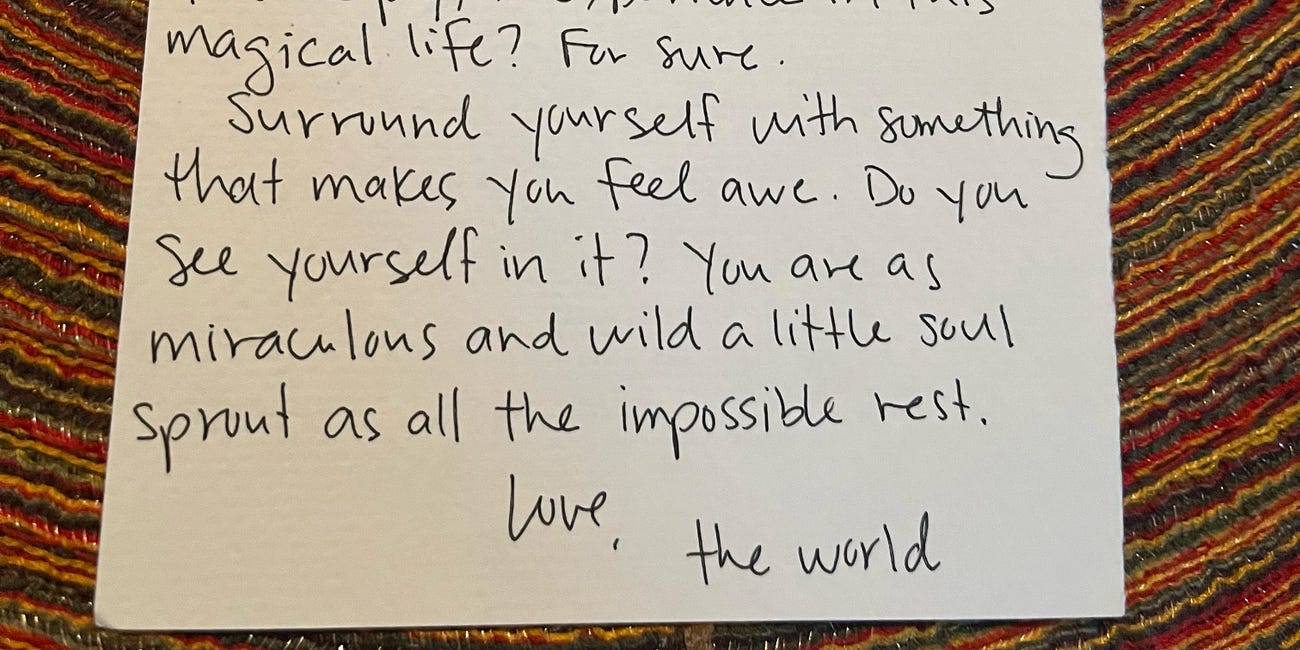 in this
magical life? For sure.
Surround yourself with something
that makes you feel awe. Do you
see yourself in it? You are as
miraculous and wild a little soul
sprout as all the impossible rest.
Love,
the world